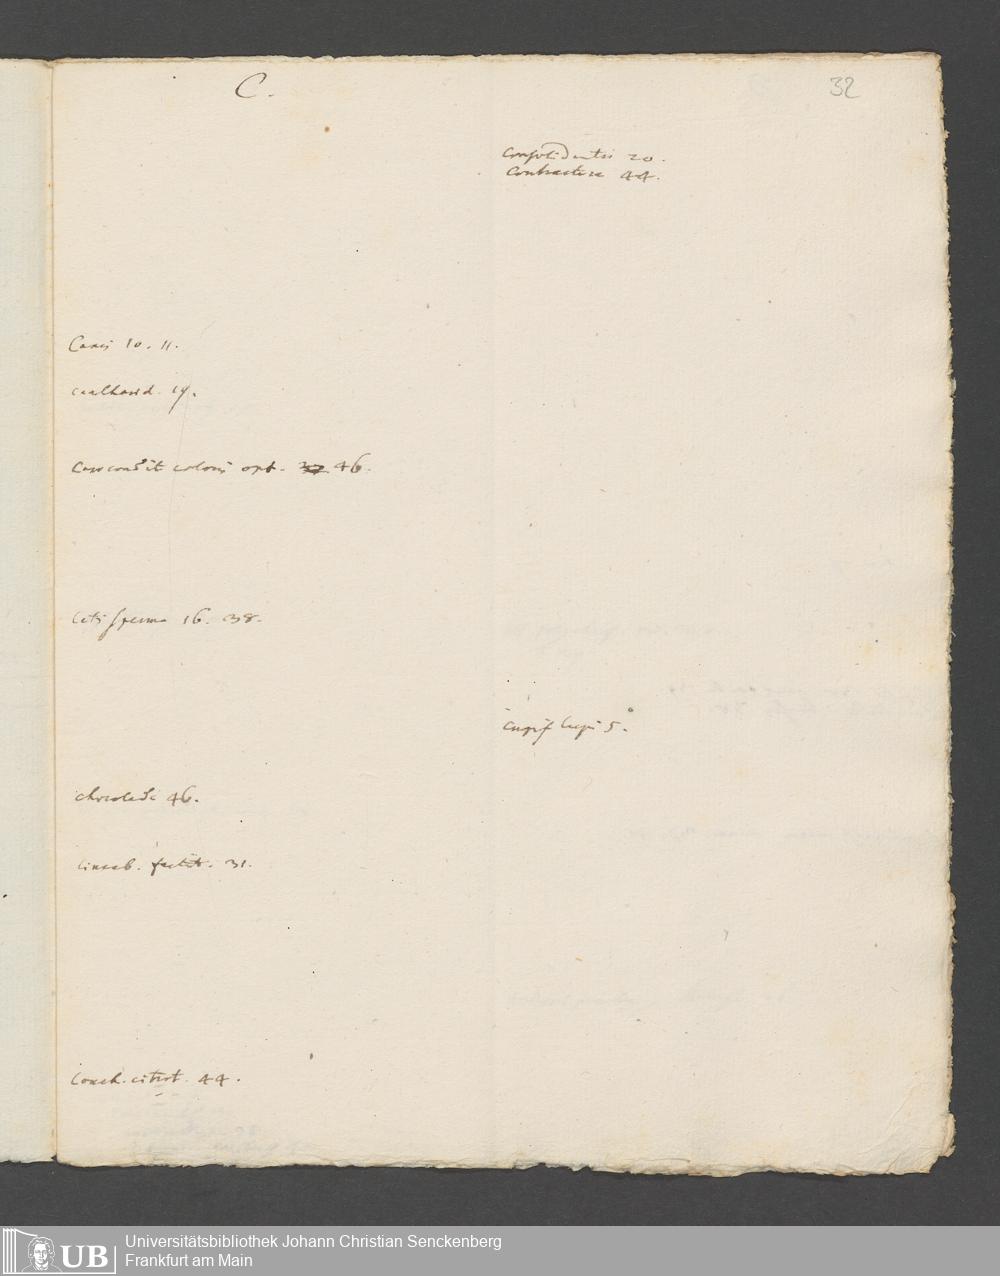 C.
32
Consolidantia 20.
Contractura 44.
Canis 10. 11.
cantharid. 19.
coloris opt. 46.
Ceti sperma 16. 38.
Crepit. lupi 5.
chocolade 46.
Cinnab. factit. 31.
Conch. citrat. 44.
UB
Universitätsbibliothek Johann Christian Senckenberg
Frankfurt am Main